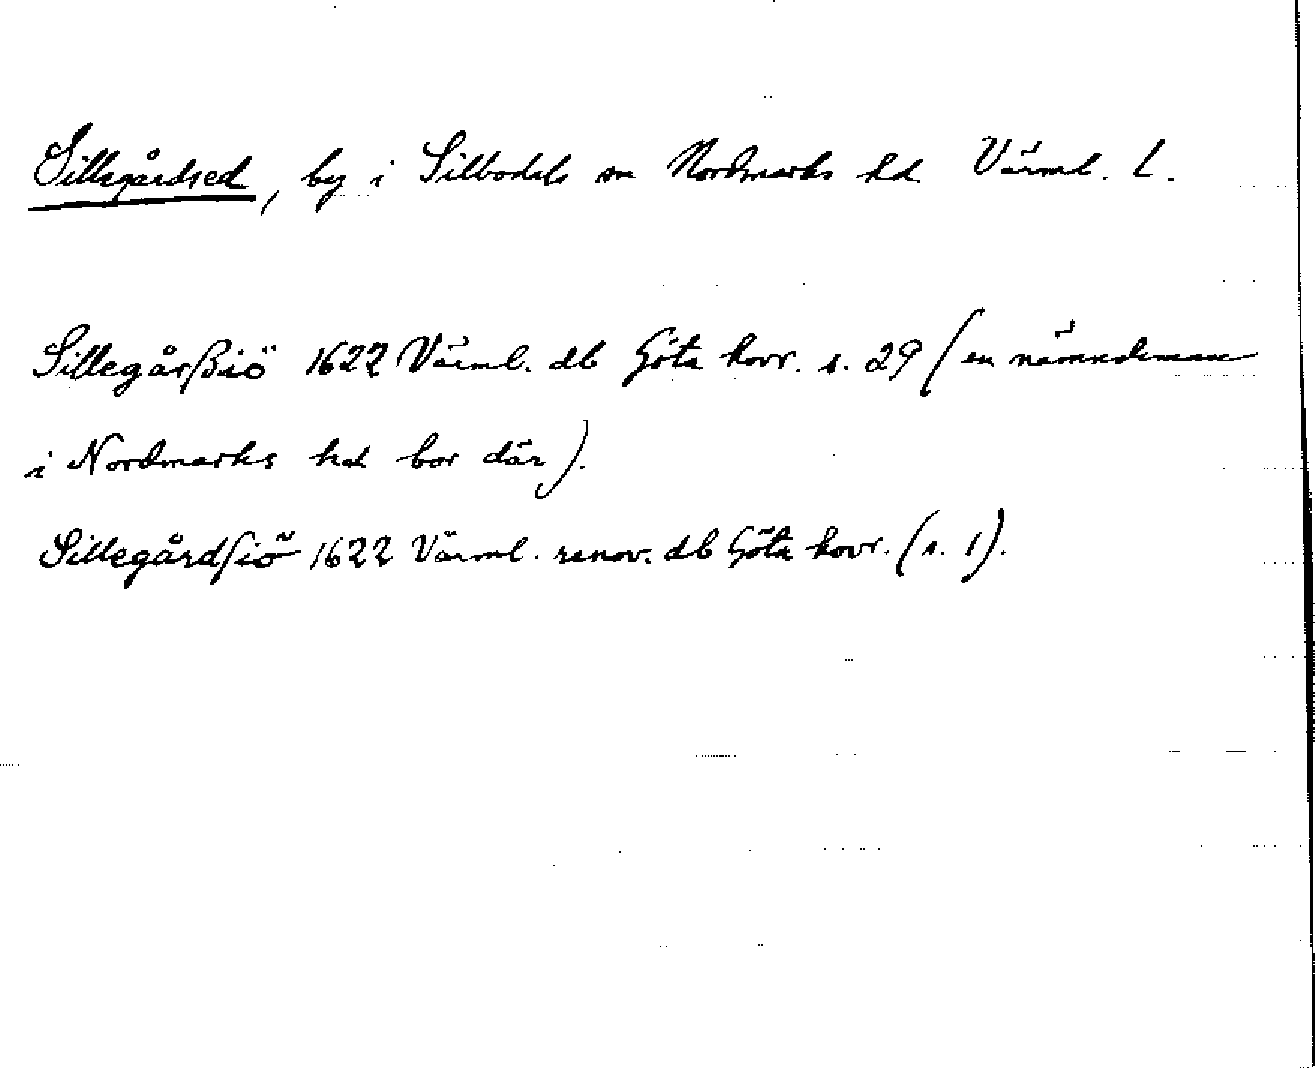 Sillegårdsed, by i Silbodals sn Nordmarks hd Värml. l.
Sillegårßiö 1622 Värml. db Göta hovr. s. 29 (en nämndeman
i Nordmarks hd bor där).
Sillegårdsiö 1622 Värml. renov. db Göta hovr. (s. 1).